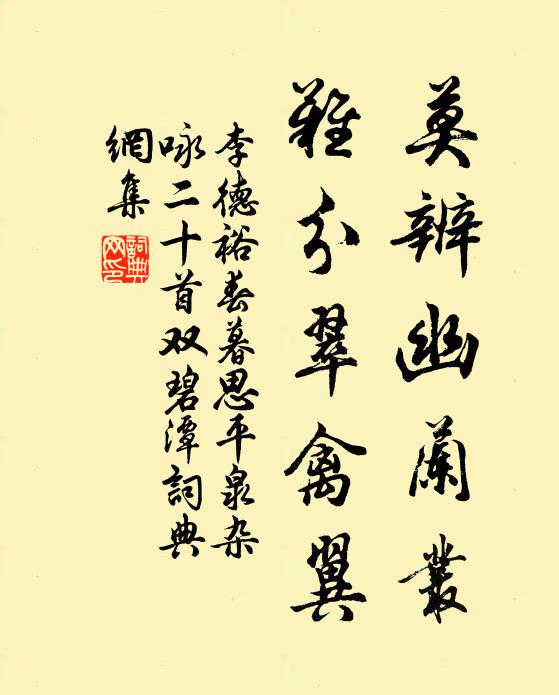 莫辨幽蘭叢
難分翠禽翼
李德裕春暮思平泉杂
咏二十首双碧潭詞典
網集
詞典
网印